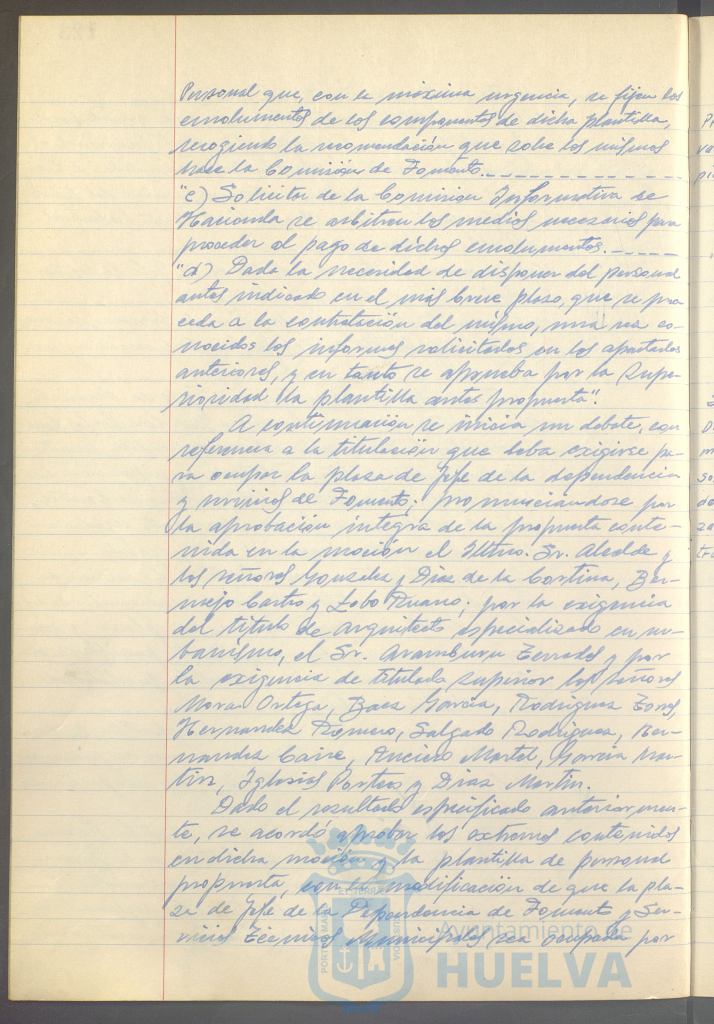 Personal que, con la máxima urgencia, se fijen los
emolumentos de los componentes de dicha plantilla,
recogiendo la recomendación que sobre los mismos
hace la Comisión de Fomento.
"c) Solicitar de la Comisión Informativa de
Hacienda se arbitren los medios necesarios para
proceder al pago de dichos emolumentos.
"d) Dada la necesidad de disponer del personal
antes indicado en el más breve plazo, que se pro
ceda a la contratación del mismo, una vez co-
nocidos los informes solicitados en los apartados
anteriores, y en tanto se aprueba por la Supe-
rioridad la plantilla antes propuesta".
A continuación se inicia un debate, con
referencia a la titulación que deba exigirse pa-
ra ocupar la plaza de Jefe de la dependencia
y servicios de Fomento; pronunciándose por
la aprobación íntegra de la propuesta conte-
nida en la moción el Iltmo. Sr. Alcalde y
los señores González y Díaz de la Cortina, Ber-
mejo Castro y Lobo Ruano; por la exigencia
del título de arquitecto especializado en ur-
banismo, el Sr. Aramburu Terrades y por
la exigencia de titulado superior los señores
Mora Ortega, Baez García, Rodríguez
Hernandez Romero, Salgado Rodríguez, Her-
nandez Anciero Martel, García Mar-
tín, Iglesias y Díaz Martín.
Dado el resultado especificado anteriormen-
te, se acordó aprobar los extremos contenidos
en dicha moción y la plantilla de personal
propuesta, con la modificación de que la pla-
za de Jefe de la Dependencia de Fomento y Ser-
vicios Técnicos Municipales sea ocupada por
Ayuntamiento de
HUELVA